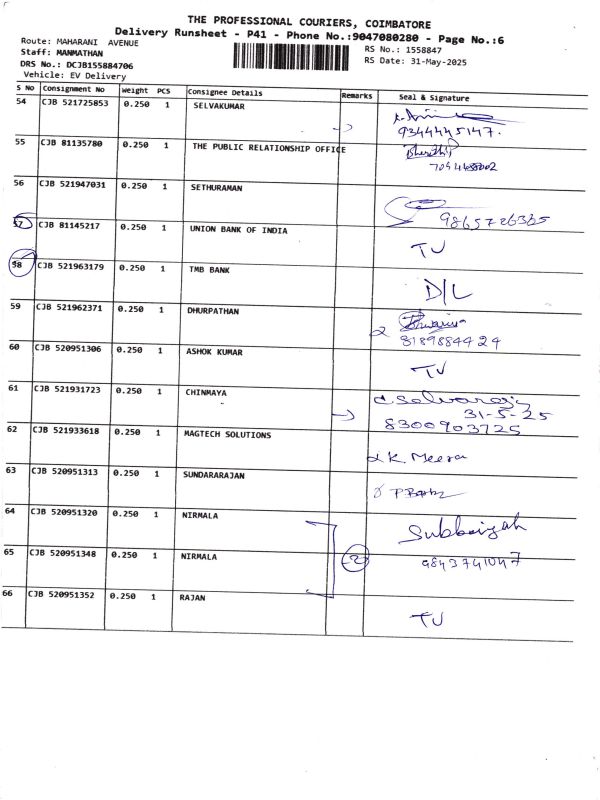 THE PROFESSIONAL COURIERS, COIMBATORE
Delivery Runsheet - P41 - Phone No.:9047080280 - Page No.:6
Route: MAHARANI AVENUE
RS No.: 1558847
Staff: MANMATHAN
RS Date: 31-May-2025
DRS No.: DCJB155884706
Vehicle: EV Delivery
S No Consignment No Weight PCS Consignee Details Remarks Seal & Signature
54 CJB 521725853 0.250 1 SELVAKUMAR
9344445147.
55 CJB 81135780 0.250 1 THE PUBLIC RELATIONSHIP OFFICE
56 CJB 521947031 0.250 1 SETHURAMAN
9865726365
57 CJB 81145217 0.250 1 UNION BANK OF INDIA TU
58 CJB 521963179 0.250 1 TMB BANK D/L
59 CJB 521962371 0.250 1 DHURPATHAN
8189884424
60 CJB 520951306 0.250 1 ASHOK KUMAR TU
61 CJB 521931723 0.250 1 CHINMAYA C. Selvaraj
31-5-25
8300903725
62 CJB 521933618 0.250 1 MAGTECH SOLUTIONS K. Meera
63 CJB 520951313 0.250 1 SUNDARARAJAN
64 CJB 520951320 0.250 1 NIRMALA Subbaiyah
65 CJB 520951348 0.250 1 NIRMALA 2 9843741047
66 CJB 520951352 0.250 1 RAJAN TU